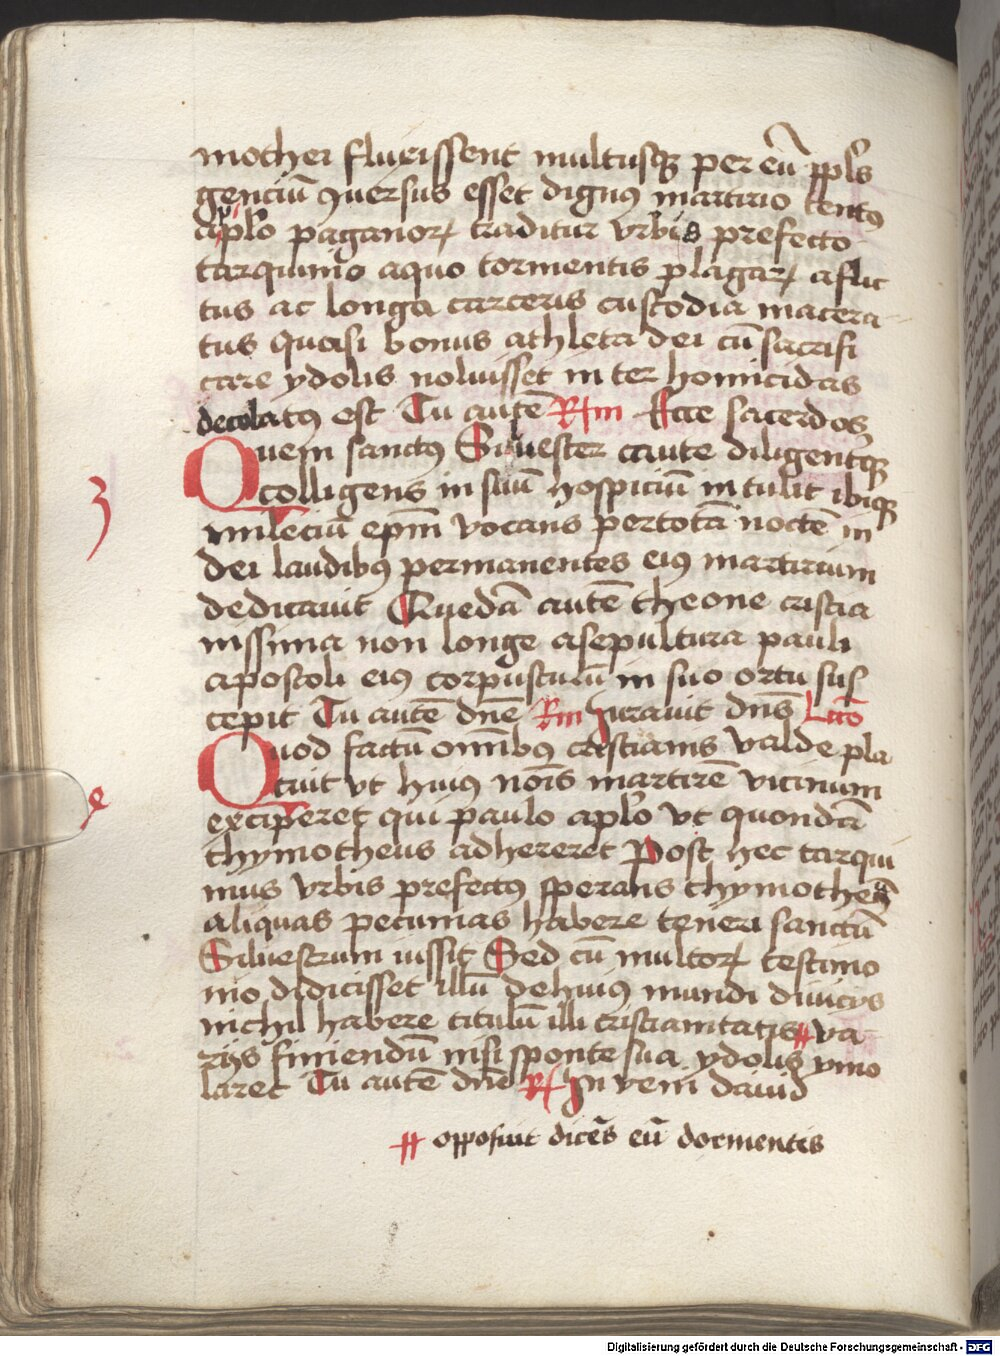 mothei fluxissent multusq₃ per eū ppl's
genciū ꝯuersus esset dignꝯ martirio tentꝯ
aplo paganoꝝ traditur vrbis prefecto
tarquinio aquo tormentis plagaꝝ aflic
tus ac longa carceris custodia macera-
tus quasi bonus athleta dei cū sacrifi
care ydolis noluisset in ter homicidas
decolatꝯ est Tu autē Rm Ecce sacerdos
Quem sanctꝯ Siluester caute diligentq₃
colligens in suū hospiciū in tulit ibiq₃
milleciū ep̄m vocans pertotā noctē in
dei laudibꝯ permanentes eiꝯ martirium
dedicauit Quedā autē theone cristia
nissima non longe asepultura pauli
apostoli eiꝯ corpusculū in suo ortu sus
cepit Tu autē dn̄e Rm Jurauit dn̄s Lcō
Quod factū om̄ibꝯ cristianis valde pla
cuit vt huiꝯ nōis martirē vicinum
exciperet qui paulo aplo vt quondā
thymotheus adhereret Post hec tarqui
nius vrbis prefectꝯ sperans thymotheū
aliquas pecunias habere teneri sanctū
Siluestrum iussit Sed cū multoꝝ testimo
nio didicisset illū dehuiꝯ mundi diuicijs
nichil habere titulū illi cristianitatis # va
rijs finiendū nisi sponte sua ydolis ymo
laret Tu autē dn̄e R In veni dauid
# opposuit dicēs eū dormentis
3
e
Digitalisierung gefördert durch die Deutsche Forschungsgemeinschaft - DFG